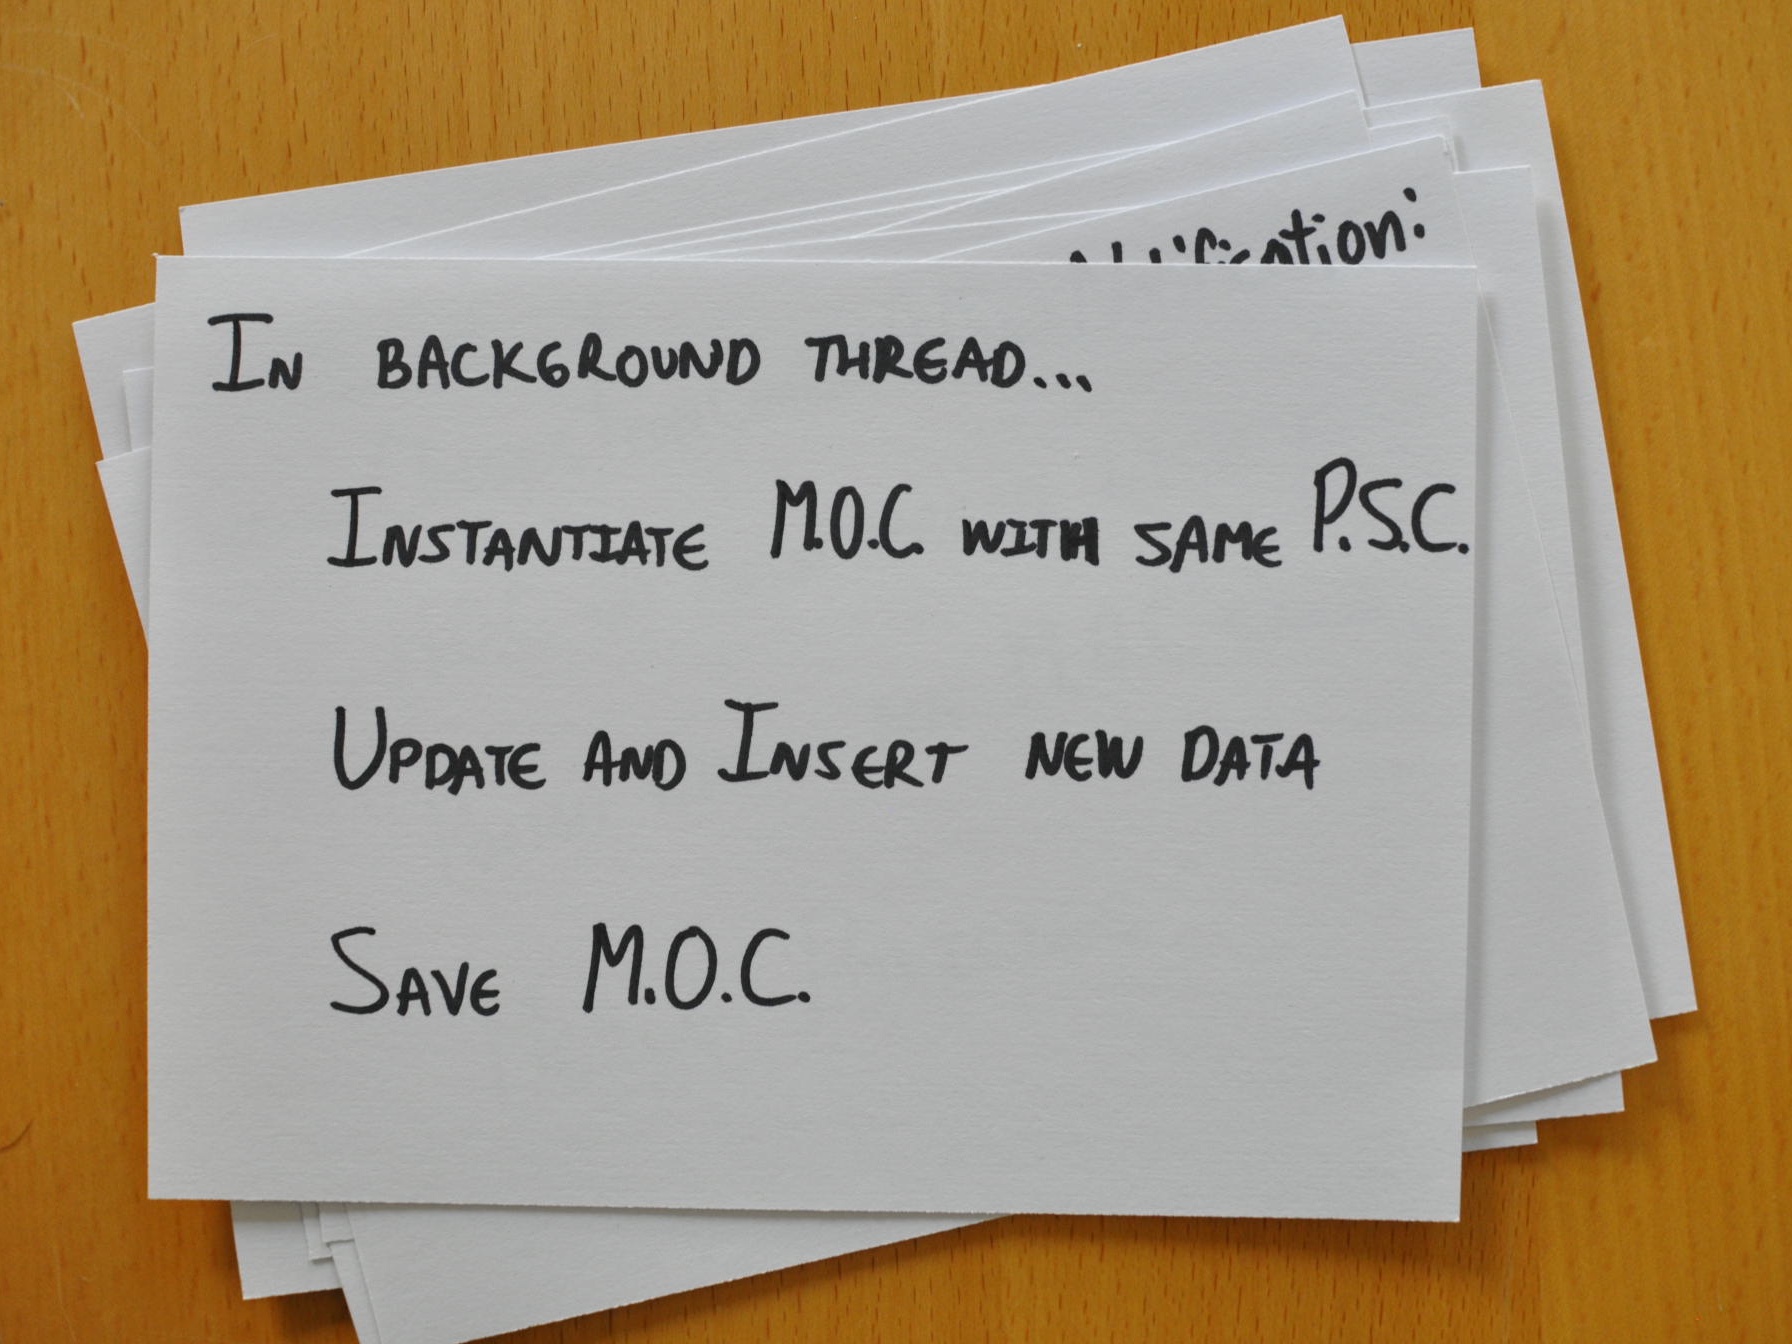 In BACKGROUND THREAD...
INSTANTIATE M.O.C. WITH SAME P.S.C.
UPDATE AND INSERT NEW DATA
SAVE M.O.C.